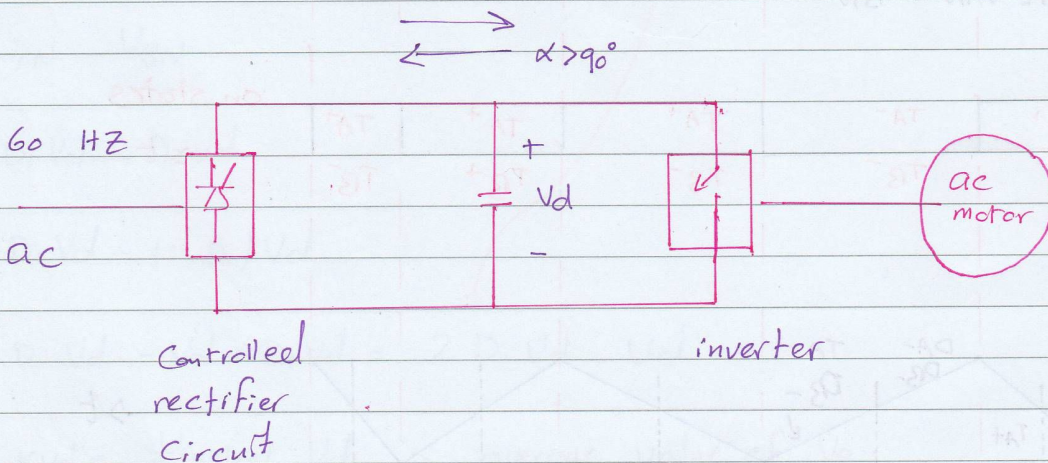 α>90°
60 HZ
ac
+
Vd
-
ac
motor
Controlleed
rectifier
Circuit
inverter